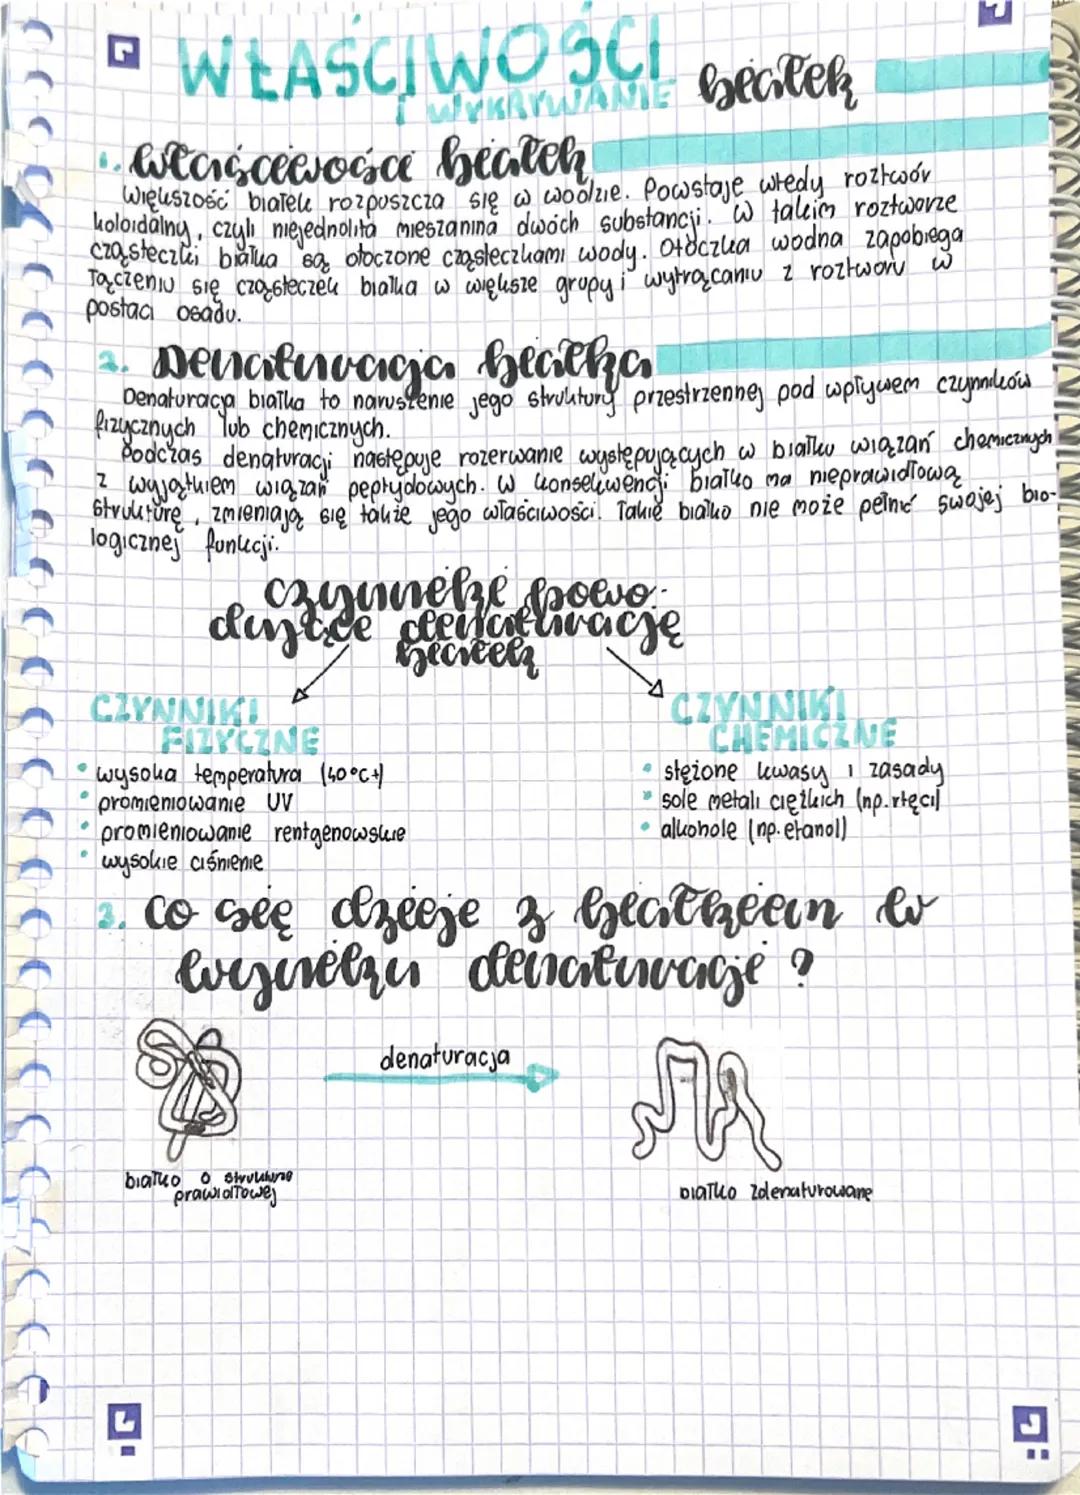 WŁAŚCIWOŚCI
I WYKRYWANIE białek
1. Właściwości białek
Większość białek rozpuszcza się w wodzie. Powstaje wtedy roztwór
koloidalny, czyli niejednolita mieszanina dwóch substancji. W takim roztworze
cząsteczki białka są otoczone cząsteczkami wody. Otoczka wodna zapobiega
łączeniu się cząsteczek białka w większe grupy i wytrącaniu z roztworu w
postaci osadu.
2. Denaturacja białka
Denaturacja białka to naruszenie jego struktury przestrzennej pod wpływem czynników
fizycznych lub chemicznych.
Podczas denaturacji następuje rozerwanie występujących w białku wiązań chemicznych
z wyjątkiem wiązań peptydowych. W konsekwencji białko ma nieprawidłową
strukturę, zmieniają się także jego właściwości. Takie białko nie może pełnić swojej bio-
logicznej funkcji.
czynniki powo-
dujące denaturację
białek
CZYNNIKI
FIZYCZNE
• wysoka temperatura (40°C+)
• promieniowanie UV
• promieniowanie rentgenowskie
• wysokie ciśnienie
CZYNNIKI
CHEMICZNE
• stężone kwasy i zasady
• sole metali ciężkich (np. rtęci)
• alkohole (np. etanol)
3. Co się dzieje z białkiem w
wyniku denaturacji?
denaturacja
białko o strukturze
prawidłowej
białko zdenaturowane